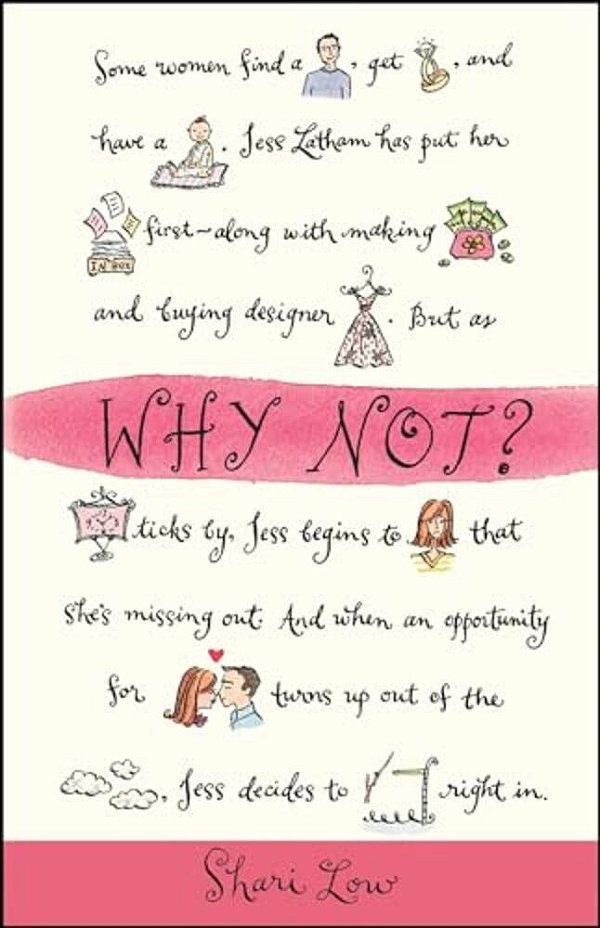 Some women find a , get , and
have a . Jess Latham has put her
IN BOX first—along with making
and buying designer . But as
WHY NOT?
ticks by, Jess begins to that
she's missing out. And when an opportunity
for turns up out of the
, Jess decides to right in.
Shari Low